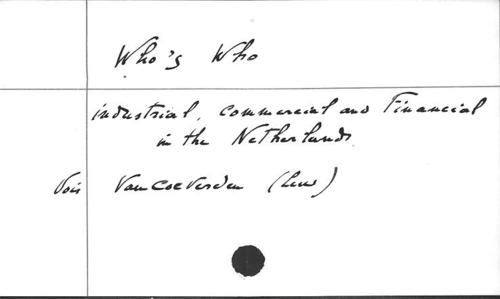 Who's Who
industrial, commercial and Financial
in the Netherlands
Voir Van Coeverden (Leu)